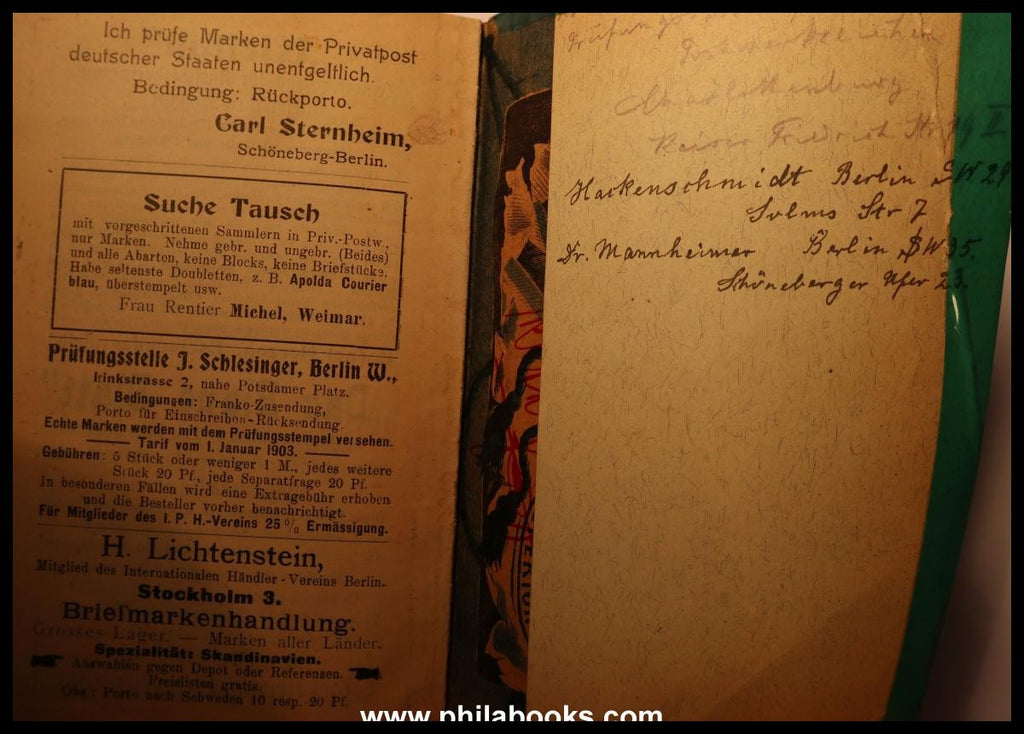 Ich prüfe Marken der Privatpost
deutscher Staaten unentgeltlich.
Bedingung: Rückporto.
Carl Sternheim,
Schöneberg-Berlin.
Suche Tausch
mit vorgeschrittenen Sammlern in Priv.-Postw.,
nur Marken. Nehme gebr. und ungebr. (Beides)
und alle Abarten, keine Blocks, keine Briefstücke.
Habe seltenste Doubletten, z. B. Apolda Courier
blau, überstempelt usw.
Frau Rentier Michel, Weimar.
Prüfungsstelle J. Schlesinger, Berlin W.,
Linkstrasse 2, nahe Potsdamer Platz.
Bedingungen: Franko-Zusendung,
Porto für Einschreiben-Rücksendung.
Echte Marken werden mit dem Prüfungsstempel versehen.
Tarif vom 1. Januar 1903.
Gebühren: 5 Stück oder weniger 1 M., jedes weitere
Stück 20 Pf., jede Separatfrage 20 Pf.
In besonderen Fällen wird eine Extragebühr erhoben
und die Besteller vorher benachrichtigt.
Für Mitglieder des I. P. H.-Vereins 25% Ermässigung.
H. Lichtenstein,
Mitglied des Internationalen Händler-Vereins Berlin.
Stockholm 3.
Briefmarkenhandlung.
Grosses Lager. — Marken aller Länder.
Spezialität: Skandinavien.
Auswahlen gegen Depot oder Referenzen.
Preislisten gratis.
Obs.: Porto nach Schweden 10 resp. 20 Pf.
Charlottenburg
Kaiser Friedrich Str II
Hackenschmidt Berlin SW 29
Solms Str 7
Dr. Mannheimer Berlin SW 35.
Schöneberger Ufer 23.
www.philabooks.com